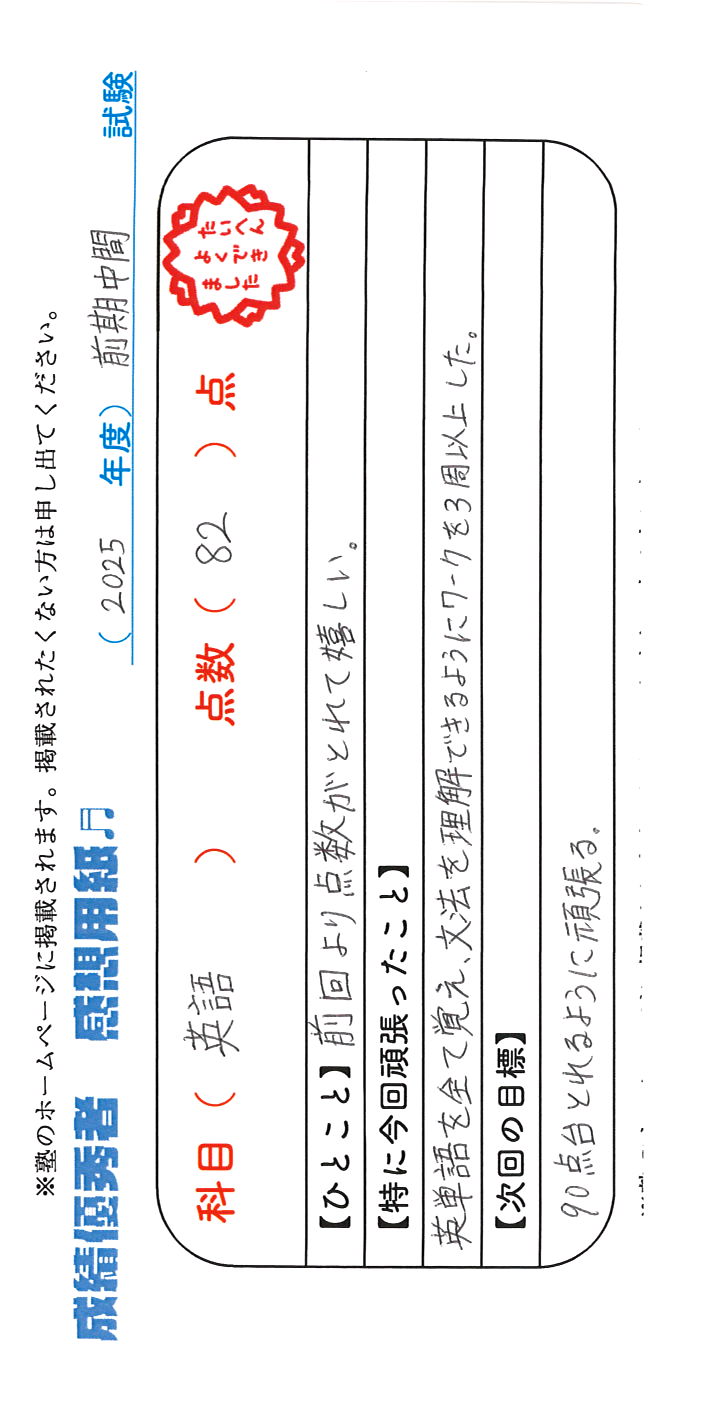 ※塾のホームページに掲載されます。掲載されたくない方は申し出てください。
成績優秀者 感想用紙♫
( 2025 年度) 前期中間 試験
科目( 英語 ) 点数( 82 )点
たいへん
よくでき
ました
【ひとこと】前回より点数がとれて嬉しい。
【特に今回頑張ったこと】
英単語を全て覚え、文法を理解できるようにワークを3周以上した。
【次回の目標】
90点台とれるように頑張る。